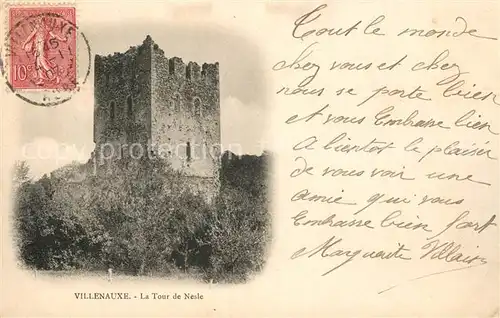 Tout le monde
chez vous et chez
nous se porte bien
et vous embrasse bien
A bientot le plaisir
de vous voir une
amie qui vous
embrasse bien fort
Marguerite Villain
VILLENAUXE. - La Tour de Nesle
10